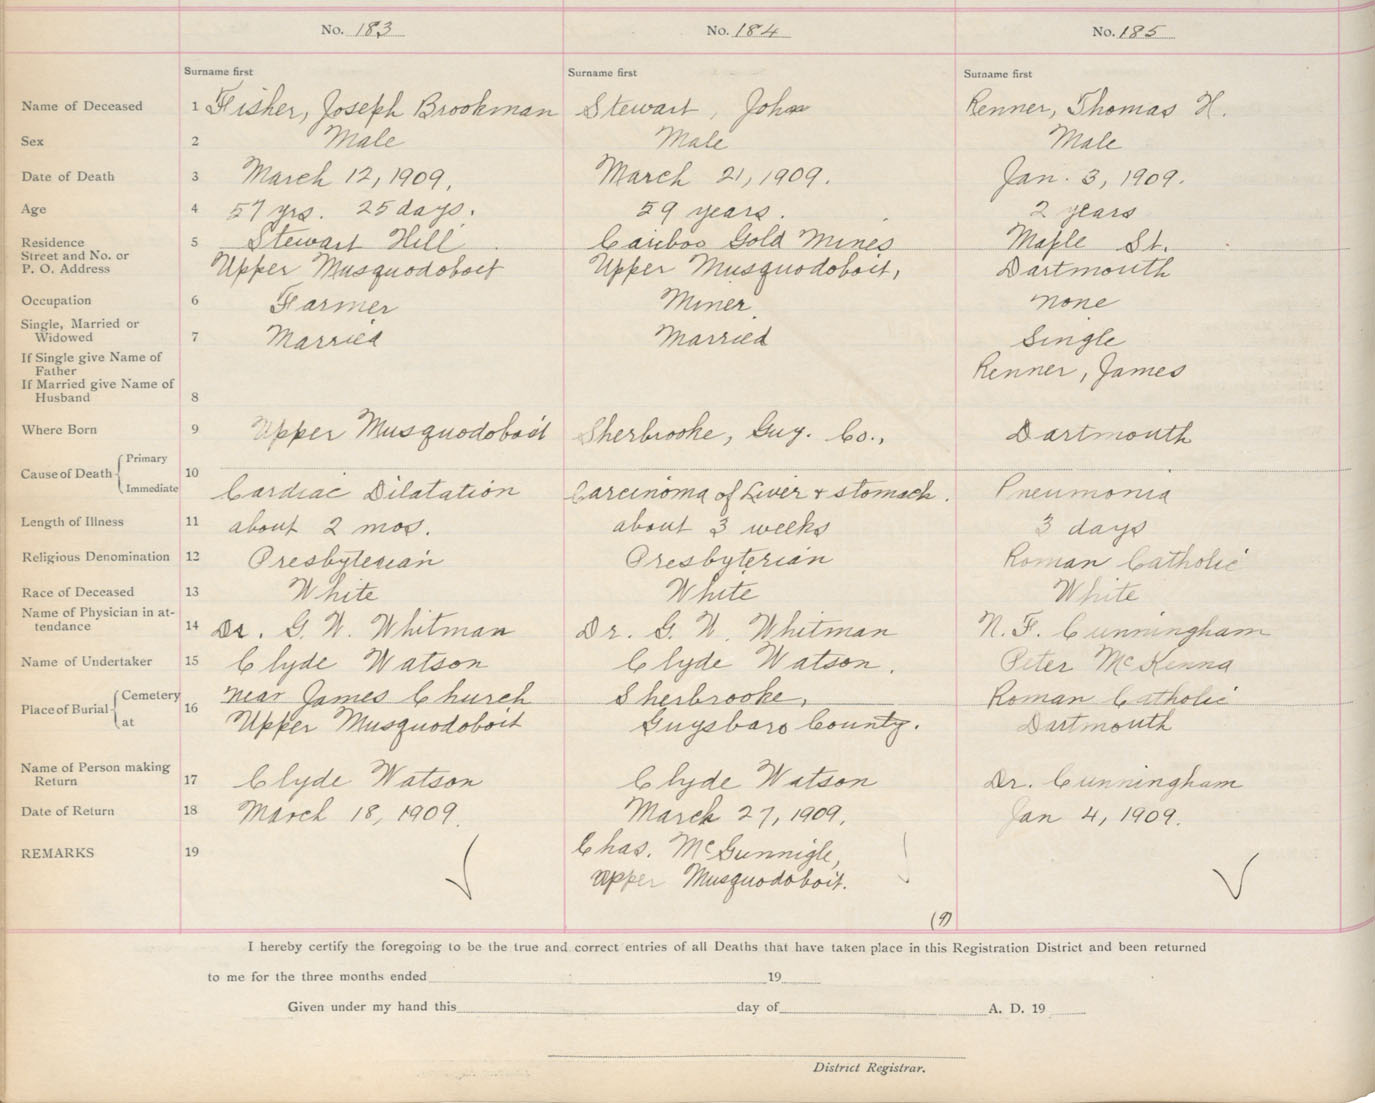 No. 183 No. 184 No. 185
Surname first Surname first Surname first
Name of Deceased 1 Fisher, Joseph Brookman Stewart, John Renner, Thomas H.
Sex 2 Male Male Male
Date of Death 3 March 12, 1909. March 21, 1909. Jan. 3, 1909.
Age 4 57 yrs. 25 days. 59 years. 2 years
Residence 5 Stewart Hill Cariboo Gold Mines Maple St.
Street and No. or
P. O. Address Upper Musquodoboit Upper Musquodoboit, Dartmouth
Occupation 6 Farmer Miner none
Single, Married or
Widowed 7 Married Married Single
If Single give Name of
Father Renner, James
If Married give Name of
Husband 8
Where Born 9 Upper Musquodoboit Sherbrooke, Guy. Co., Dartmouth
Primary
Cause of Death 10
Immediate Cardiac Dilatation Carcinoma of Liver + stomach. Pneumonia
Length of Illness 11 about 2 mos. about 3 weeks 3 days
Religious Denomination 12 Presbyterian Presbyterian Roman Catholic
Race of Deceased 13 White White White
Name of Physician in at-
tendance 14 Dr. G. W. Whitman Dr. G. W. Whitman N. F. Cunningham
Name of Undertaker 15 Clyde Watson Clyde Watson. Peter McKenna
Cemetery near James Church Sherbrooke, Roman Catholic
Place of Burial 16
at Upper Musquodoboit Guysboro County. Dartmouth
Name of Person making
Return 17 Clyde Watson Clyde Watson Dr. Cunningham
Date of Return 18 March 18, 1909. March 27, 1909. Jan 4, 1909.
REMARKS 19 Chas. McGunnigle,
Upper Musquodoboit.
(9)
I hereby certify the foregoing to be the true and correct entries of all Deaths that have taken place in this Registration District and been returned
to me for the three months ended 19
Given under my hand this day of A. D. 19
District Registrar.